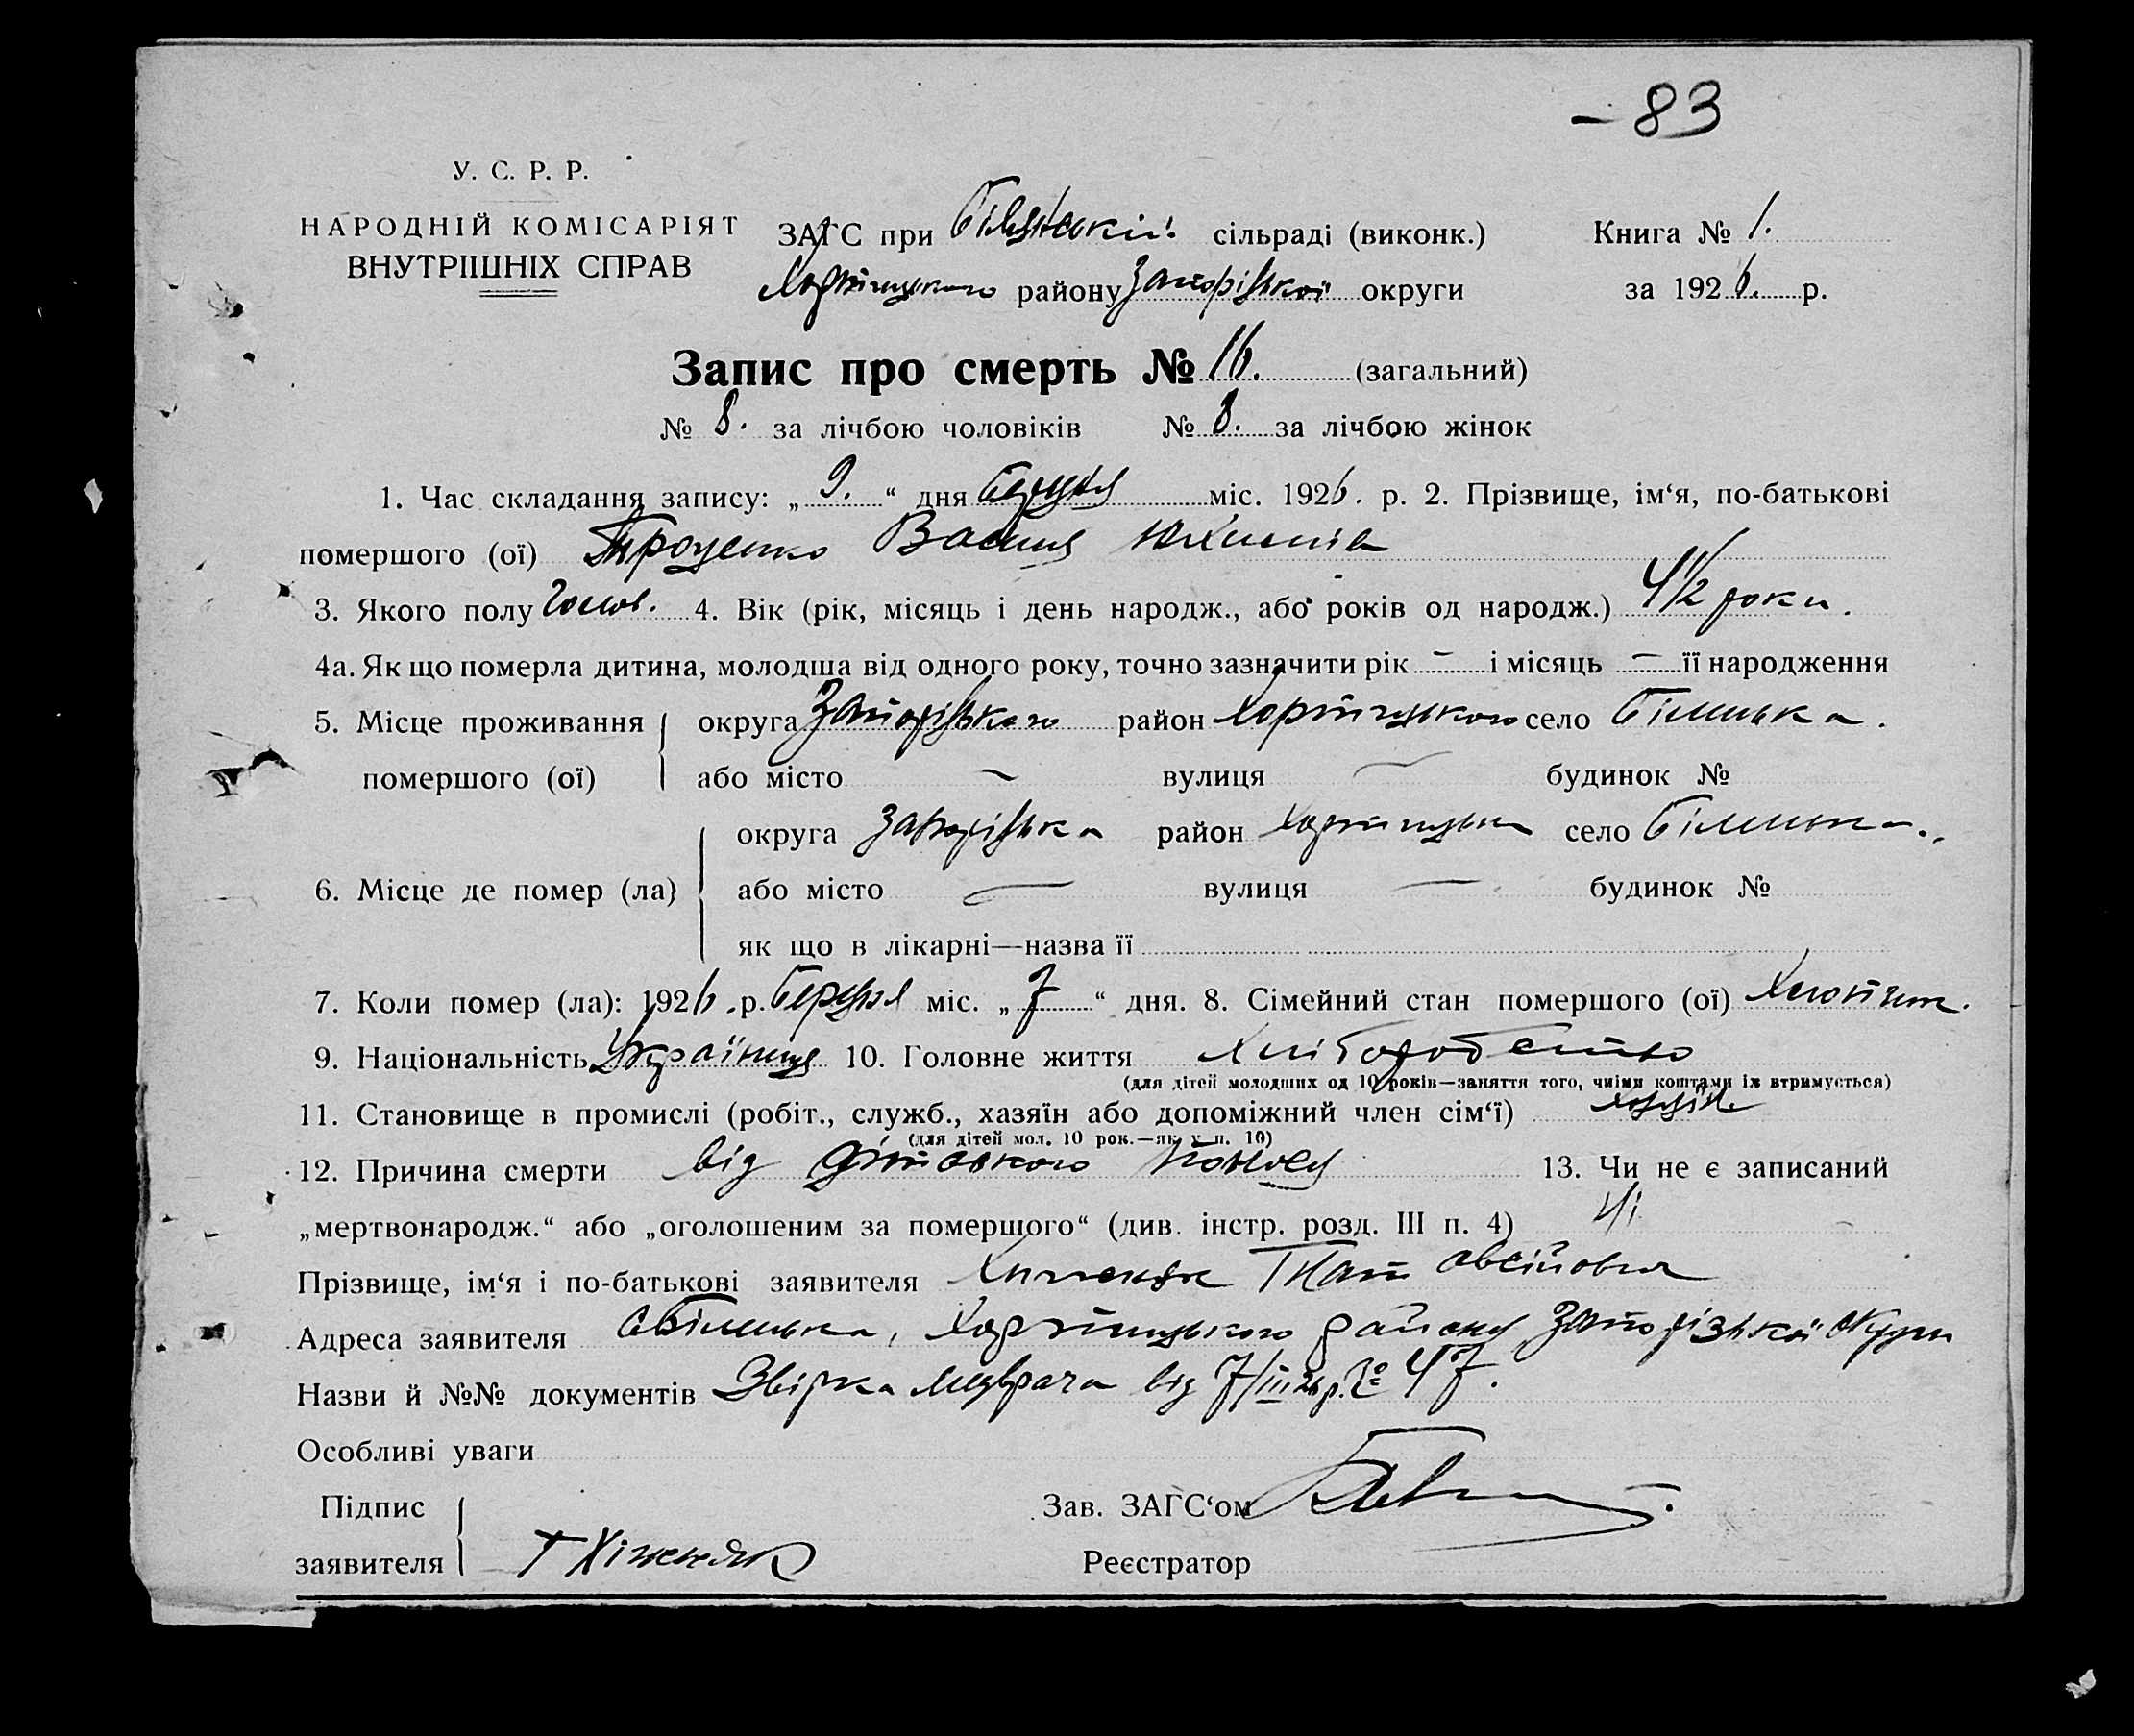 – 83
У. С. Р. Р.
НАРОДНІЙ КОМІСАРІЯТ
ВНУТРІШНІХ СПРАВ
ЗАГС при сільраді (виконк.) Книга № 1.
Хортицького району Запорізької округи за 1926. р.
Запис про смерть № 16. (загальний)
№ 8. за лічбою чоловіків № 8. за лічбою жінок
1. Час складання запису: „ 9. “ дня березня міс. 1926. р. 2. Прізвище, ім‘я, по-батькові
помершого (ої) Троценко Василь
3. Якого полу чолов. 4. Вік (рік, місяць і день народж., або років од народж.) 4 1/2 роки.
4а. Як що померла дитина, молодша від одного року, точно зазначити рік – і місяць – її народження
5. Місце проживання округа Запорізького район Хортицького село Біленька.
помершого (ої) або місто – вулиця – будинок №
округа Запорізька район Хортицька село Біленька.
6. Місце де помер (ла) або місто – вулиця – будинок №
як що в лікарні—назва її
7. Коли помер (ла): 1926.р. березня міс. „ 7 “ дня. 8. Сімейний стан помершого (ої) Хлопчик.
9. Національність Українець 10. Головне життя Хліборобство
(для дітей молодших од 10 років—заняття того, чиїми коштами їх втримується)
11. Становище в промислі (робіт., служб., хазяїн або допоміжний член сім‘ї) хазяїн
(для дітей мол. 10 рок.—як у п. 10)
12. Причина смерти від дітського поносу 13. Чи не є записаний
„мертвонародж.“ або „оголошеним за помершого“ (див. інстр. розд. III п. 4) Ні
Прізвище, ім‘я і по-батькові заявителя Гнат Овсійович
Адреса заявителя с Біленька, Хортицького району Запорізької округи
Назви й №№ документів Звірка медврача від 7/III 26 р. № 47.
Особливі уваги
Підпис Зав. ЗАГС‘ом
заявителя Г Реєстратор